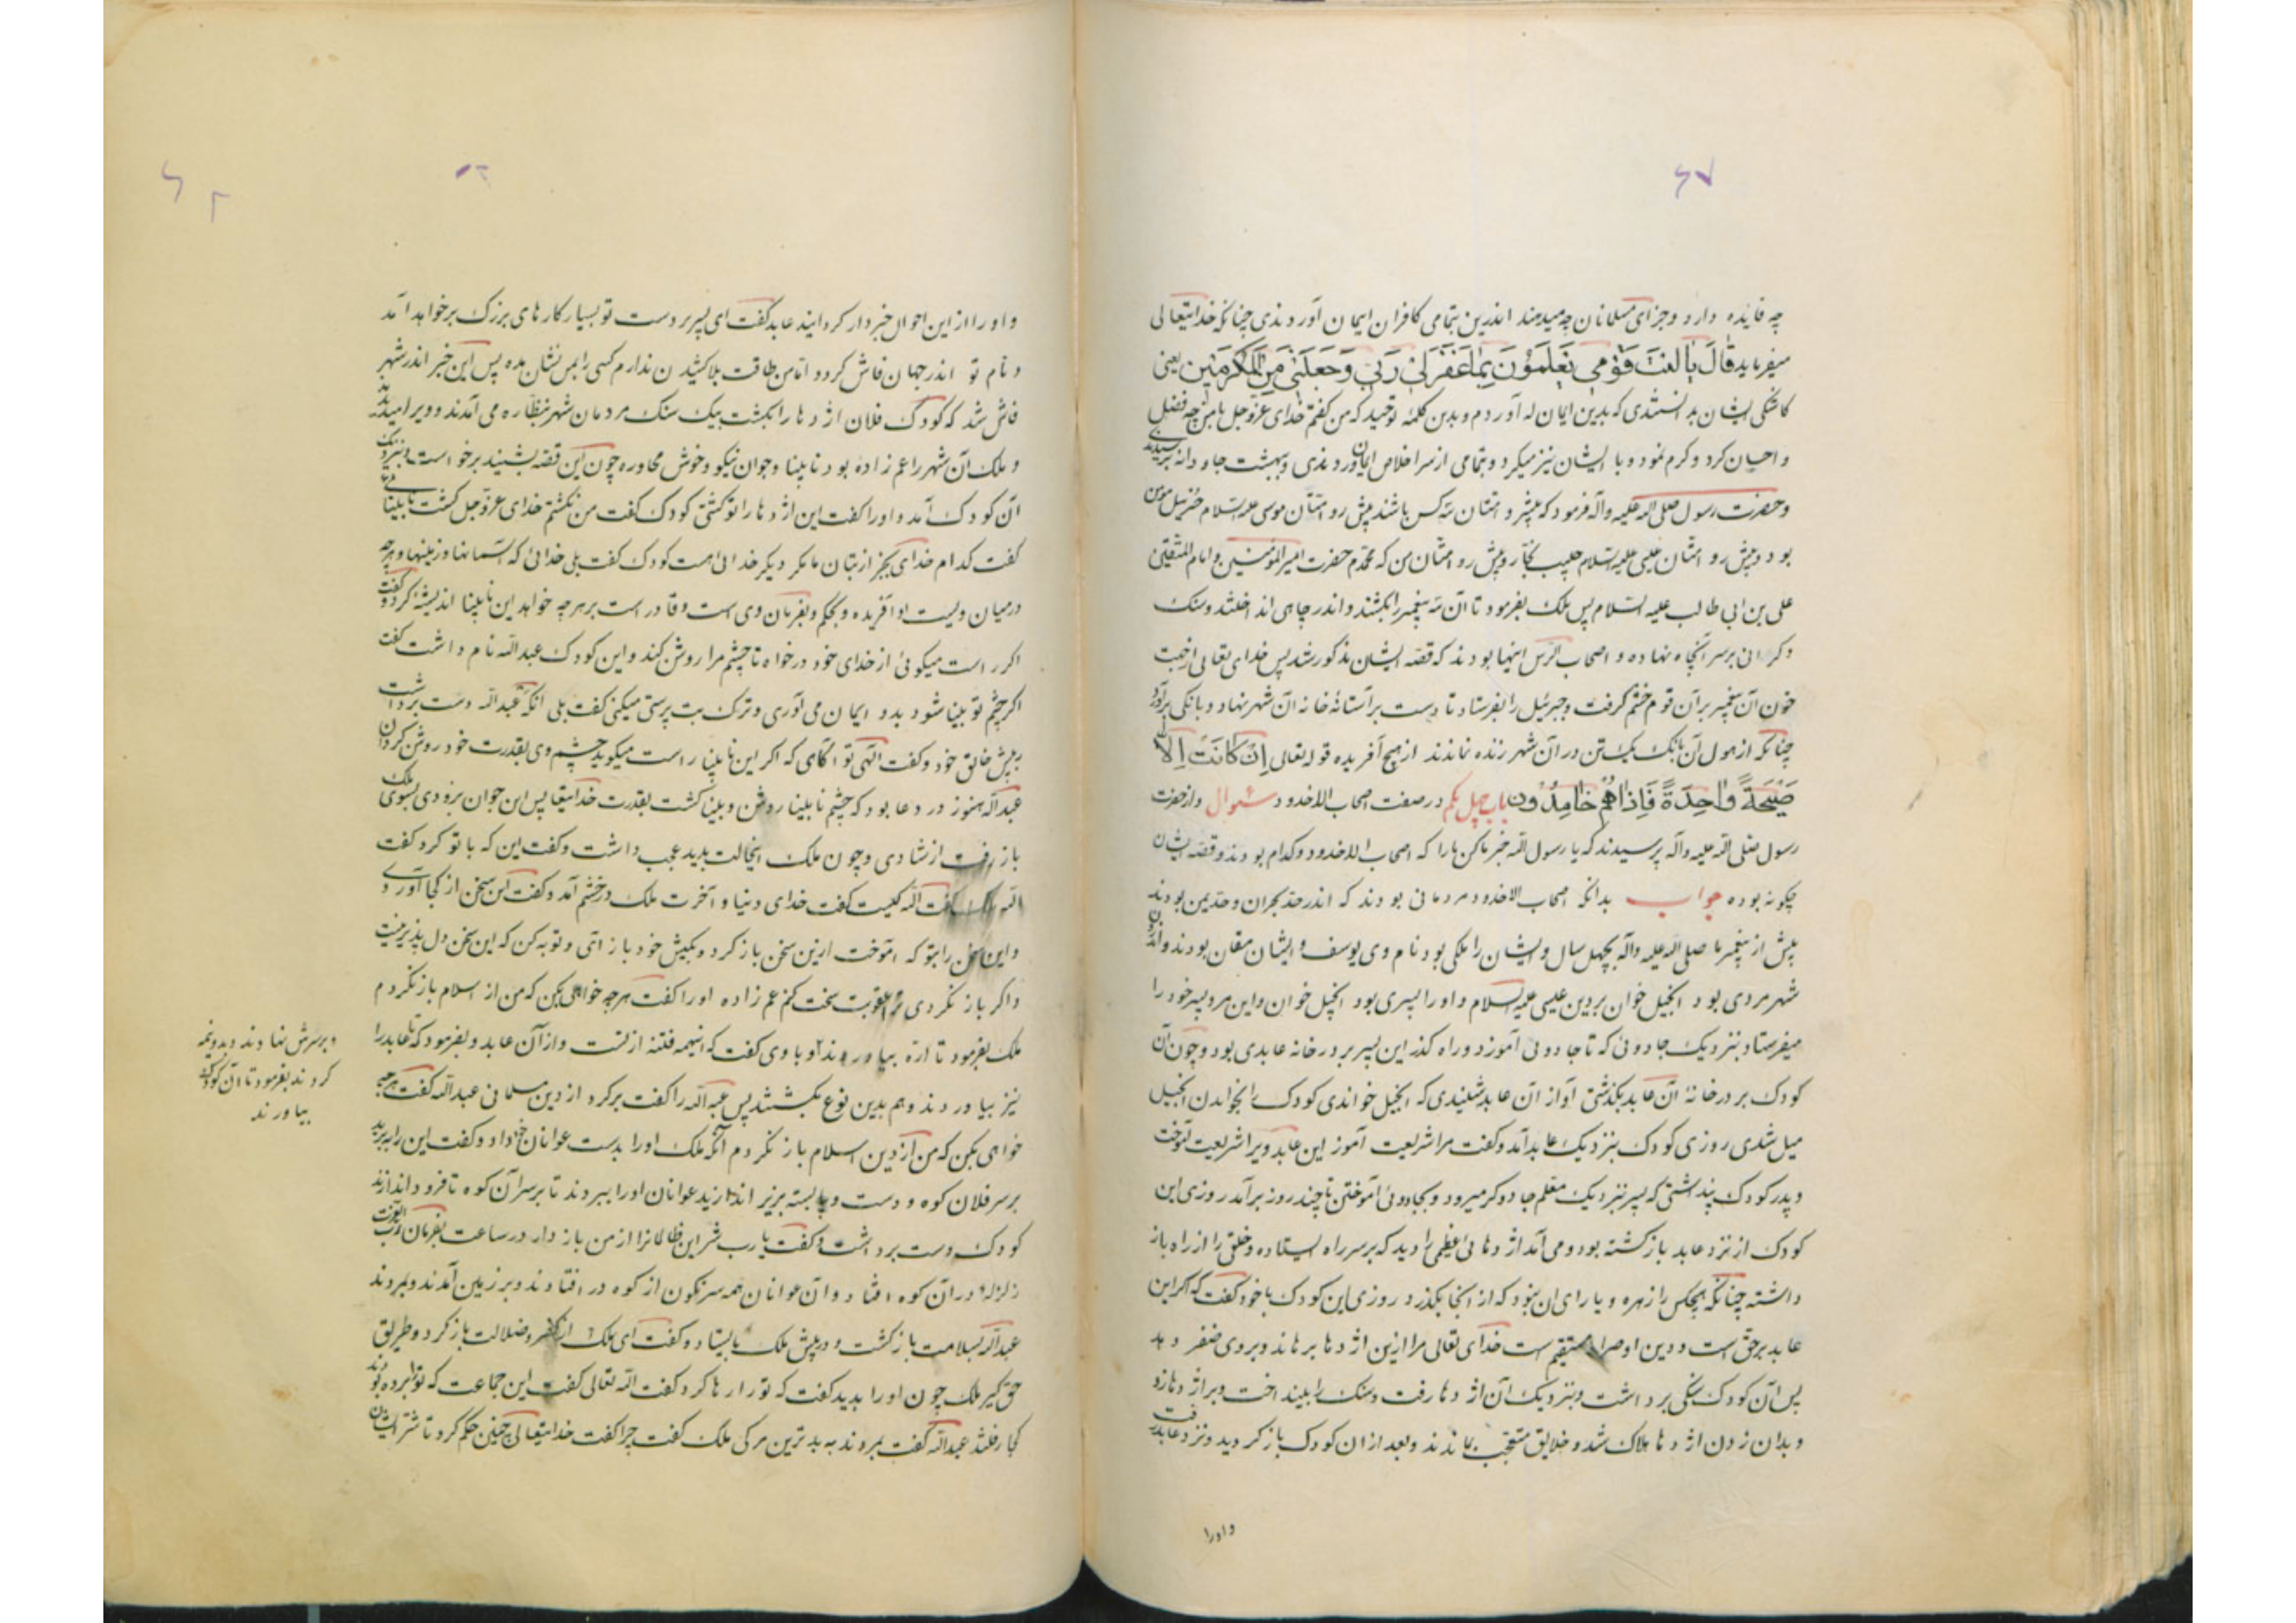 چه فایده دارد و جزای مسلمانان چه میدهند اندرین تمامی کافران ایمان آوردندی چنانکه خدایتعالی
میفرماید قَالَ یٰا لَیْتَ قَوْمی یَعْلَمُوْنَ بِمٰا غَفَرَ لیٰ رَبّیٰ وَ جَعَلَنٖی مِنَ الْمُکْرَمٖیٖنَ یعنی
کاشکی ایشان بدانستندی که بدین ایمان که آوردم و بدین کلمه توحید که من گفتم خدای عزوجل با من چه فضل
و احسان کرد و کرم نمود و با ایشان نیز میکرد و بتمامی از سر اخلاص ایمان آوردندی و ببهشت جاودانه برسیدندی
و حضرت رسول صلی الله علیه وآله فرمود که پیشرو امتان سه کس باشند پیش رو امتان موسی علیه السلام حزبیل مومن
بود و پیش رو امتان عیسی علیه السلام حبیب نجار و پیش رو امتان من که محمدم حضرت امیرالمؤمنین و امام المتقین
علی بن ابی طالب علیه السلام پس ملک بفرمود تا آن سه پیغمبر را بکشتند و اندر چاهی انداختند و سنک
و کرانی برسر آنچاه نهاده و اصحاب الرّس اینها بودند که قصه ایشان مذکور شد پس خدای تعالی از جهت
خون آن پیغمبر بر آن قوم خشم گرفت و جبرئیل را بفرستاد تا دست بر آستانهٔ خانه آن شهر نهاد و بانکی برآورد
چنانکه از هول آن بانک یک تن در آن شهر زنده نماندند از هیچ آفریده قوله تعالی اِنْ کٰانَتْ اِلّٰا
صَیْحَةً وٰاحِدَةً فَاِذٰا هُمْ خٰامِدُوْن باب چهل یکم در صفت اصحاب الاخدود سئوال و از حضرت
رسول صلی الله علیه وآله پرسیدند که یا رسول الله خبر ما کن ما را که اصحاب الاخدود کدام بودند و قصهٔ ایشان
چگونه بوده جواب بدانکه اصحاب الاخدود مردمانی بودند که اندر حد نجران و حد یمن بودند
پیش از پیغمبر ما صلی الله علیه وآله بچهل سال و ایشان را ملکی بود نام وی یوسف و ایشان مغان بودند و اندر آن
شهر مردی بود انجیل خوان بر دین عیسی علیه السلام و او را پسری بود انجیل خوان و این مرد پسر خود را
میفرستاد بنزدیک جادوئی که تا جادوئی آموزد و راه گذر این پسر بر در خانه عابدی بود و چون آن
کودک بر در خانهٔ آن عابد بگذشتی آواز آن عابد شنیدی که انجیل خواندی کودک را بخواندن انجیل
میل شدی روزی کودک بنزدیک عابد آمد و گفت مرا شریعت آموز این عابد ویرا شریعت آموخت
و پدر کودک پنداشتی که پسر بنزدیک معلم جادوگر میرود و بجادوئی آموختن تا چند روز برآمد روزی این
کودک از نزد عابد بازگشته بود و می آمد اژدهائی عظیمی را دید که بر سر راه ایستاده و خلق را از راه باز
داشته چنانکه هیچکس را زهره و یارای ان نبود که از انجا بگذرد روزی این کودک با خود گفت که اگر این
عابد بر حق است و دین او صراط مستقیم است خدای تعالی مرا ازین اژدها برهاند و بر وی ضفر دهد
پس آن کودک سنگی برداشت و بنزدیک آن اژدها رفت و سنک را بینداخت و بر اژدها زد
و بدان زدن اژدها هلاک شد و خلایق متعجب بماندند و بعد از ان کودک بازگردید و نزد عابد رفت
و او را
و او را از این احوال خبردار گردانید عابد گفت ای پسر بر دست تو بسیار کارهای بزرک برخواهد آمد
و نام تو اندر جهان فاش گردد اما من طاقت بلا کشیدن ندارم کسی را بمن نشان مده پس این خبر اندر شهر
فاش شد که کودک فلان اژدها را بکشت بیک سنک مردمان شهر بنظاره می آمدند و ویرا میدیدند
و ملک آن شهر را عم زاده بود نابینا و جوان نیکو و خوش محاوره چون این قصه بشنید برخواست و بنزدیک
آن کودک آمد و او را گفت این اژدها را تو کشتی کودک گفت من نکشتم خدای عزوجل کشت نابینا
گفت کدام خدای بجز از بتان ما مگر دیگر خدائی هست کودک گفت بلی خدائی که آسمانها و زمینها و هرچه
درمیان ویست او آفریده و بحکم و بفرمان وی است و قادر است بر هرچه خواهد این نابینا اندیشه کرد و گفت
اگر راست میگوئی از خدای خود درخواه تا چشم مرا روشن کند و این کودک عبدالله نام داشت گفت
اگر چشم تو بینا شود بدو ایمان می آوری و ترک بت پرستی میکنی گفت بلی آنگه عبدالله دست برداشت
به پیش خالق خود و گفت الهی تو آگاهی که اگر این نابینا راست میگوید چشم وی بقدرت خود روشن گردان
عبدالله هنوز در دعا بود که چشم نابینا روشن و بینا گشت بقدرت خدایتعالی پس این جوان بزودی بسوی ملک
باز رفت از شادی و چون ملک اینحالت بدید عجب داشت و گفت این که با تو کرد گفت
الله ملک گفت الله کیست گفت خدای دنیا و آخرت ملک درخشم آمد و گفت این سخن از کجا آوردی
و این سخن را بتو که آموخت ازین سخن باز گرد و بکیش خود باز آئی و توبه کن که این سخن دل پذیر نیست
و اگر باز نگردی ترا عقوبت سخت کنم عم زاده او را گفت هرچه خواهی بکن که من از اسلام باز نگردم
ملک بفرمود تا ارّه بیاوردند و با وی گفت که اینهمه فتنه از تست و از آن عابد و بفرمود که تا عابد را
نیز بیاوردند و هم بدین نوع بکشتند پس عبدالله را گفت برگرد از دین مسلمانی عبدالله گفت هرچه
خواهی بکن که من از دین اسلام باز نگردم آنگه ملک او را بدست عوانان خود داد و گفت این را ببرید
بر سر فلان کوه و دست و پا بسته بزیر اندازید عوانان او را ببردند تا بر سر آن کوه تا فرود اندازند
کودک دست برداشت و گفت یا رب شر این ظالمانرا از من باز دار در ساعت بفرمان رب العزت
زلزله در آن کوه افتاد و آن عوانان همه سرنگون از کوه در افتادند و بر زمین آمدند و بمردند
عبدالله بسلامت بازگشت و در پیش ملک بایستاد و گفت ای ملک از کفر و ضلالت بازگرد و طریق
حق گیر ملک چون او را بدید گفت که ترا رها کرد گفت الله تعالی گفت این جماعت که ترا برده بودند
کجا رفتند عبدالله گفت بمردند به بدترین مرگی ملک گفت چرا گفت خدایتعالی چنین حکم کرد تا شر ایشان
و بر سرش نهادند و بدو نیمه
کردند بفرمود تا آن کودک
بیاورند